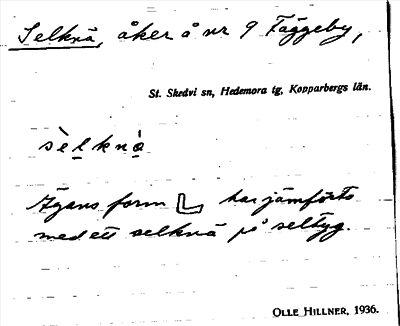 Selknä, åker å nr 9 Fäggeby,
St. Skedvi sn, Hedemora tg, Kopparbergs län.
sèlknа̀
Ägans form har jämförts
med ett selknä på seltyg.
OLLE HILLNER, 1936.